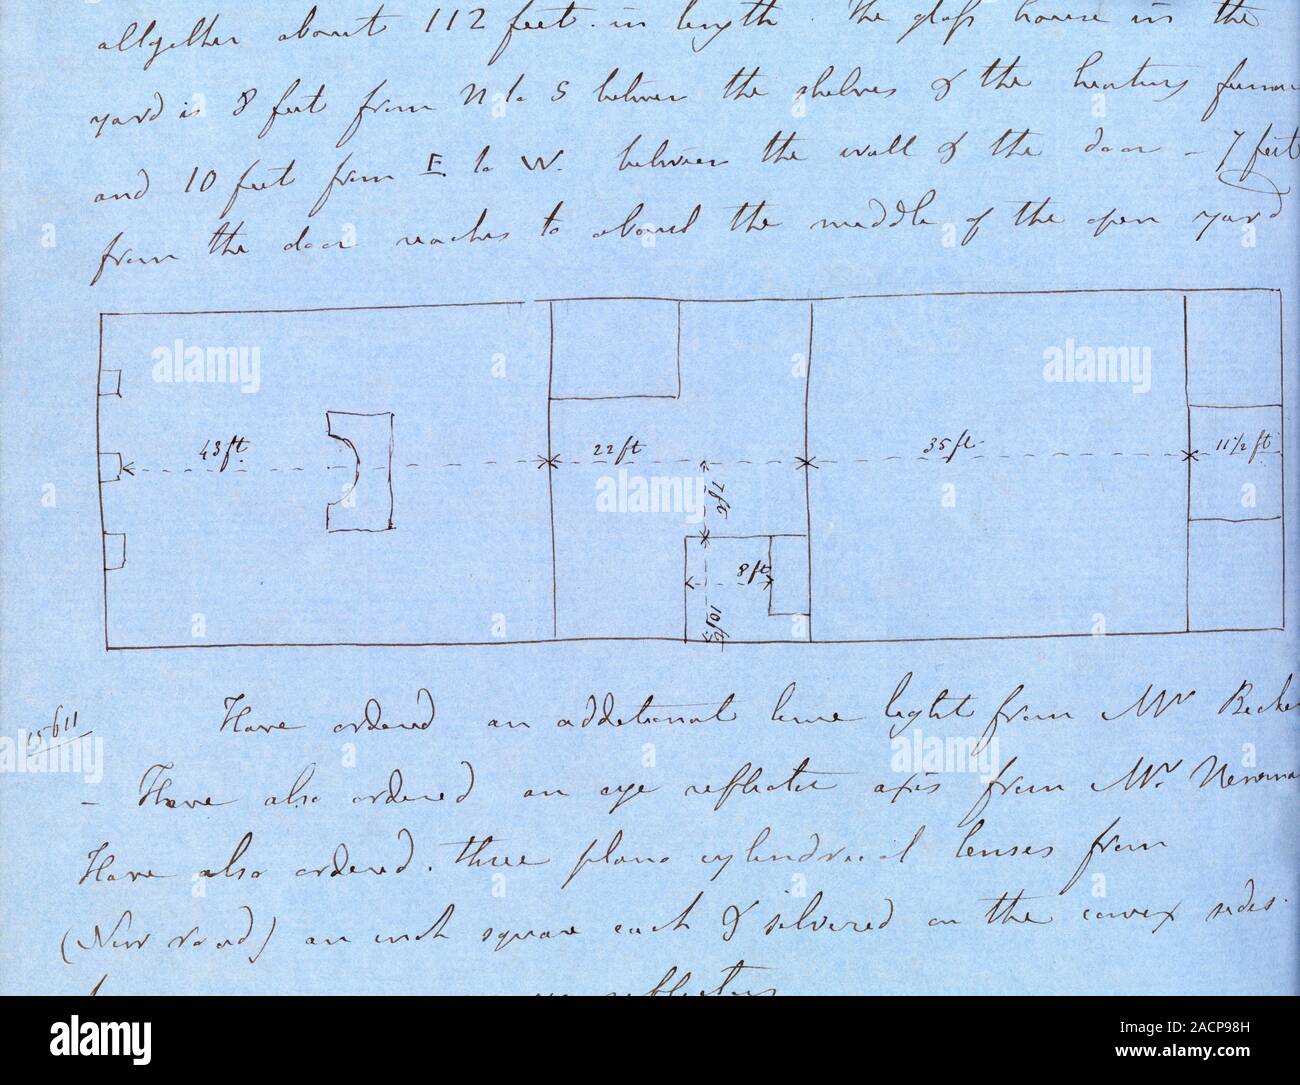 altogether about 112 feet in length. The glass house in the
yard is 8 feet from N to S between the shelves & the heating
and 10 feet from E. to W. between the wall & the door - 7 feet
from the door reaches to about the middle of the open yard
43 ft.
22 ft
35 ft.
11 1/2 ft
7 ft
8 ft
10 ft
15611
Have ordered an additional lime light from Mr
- Have also ordered an eye reflector from Mr.
Have also ordered. three plano cylindrical lenses from
(New road) an inch square each & silvered on the convex sides.
reflectors
a
alamy
Image ID: ACP98H
www.alamy.com